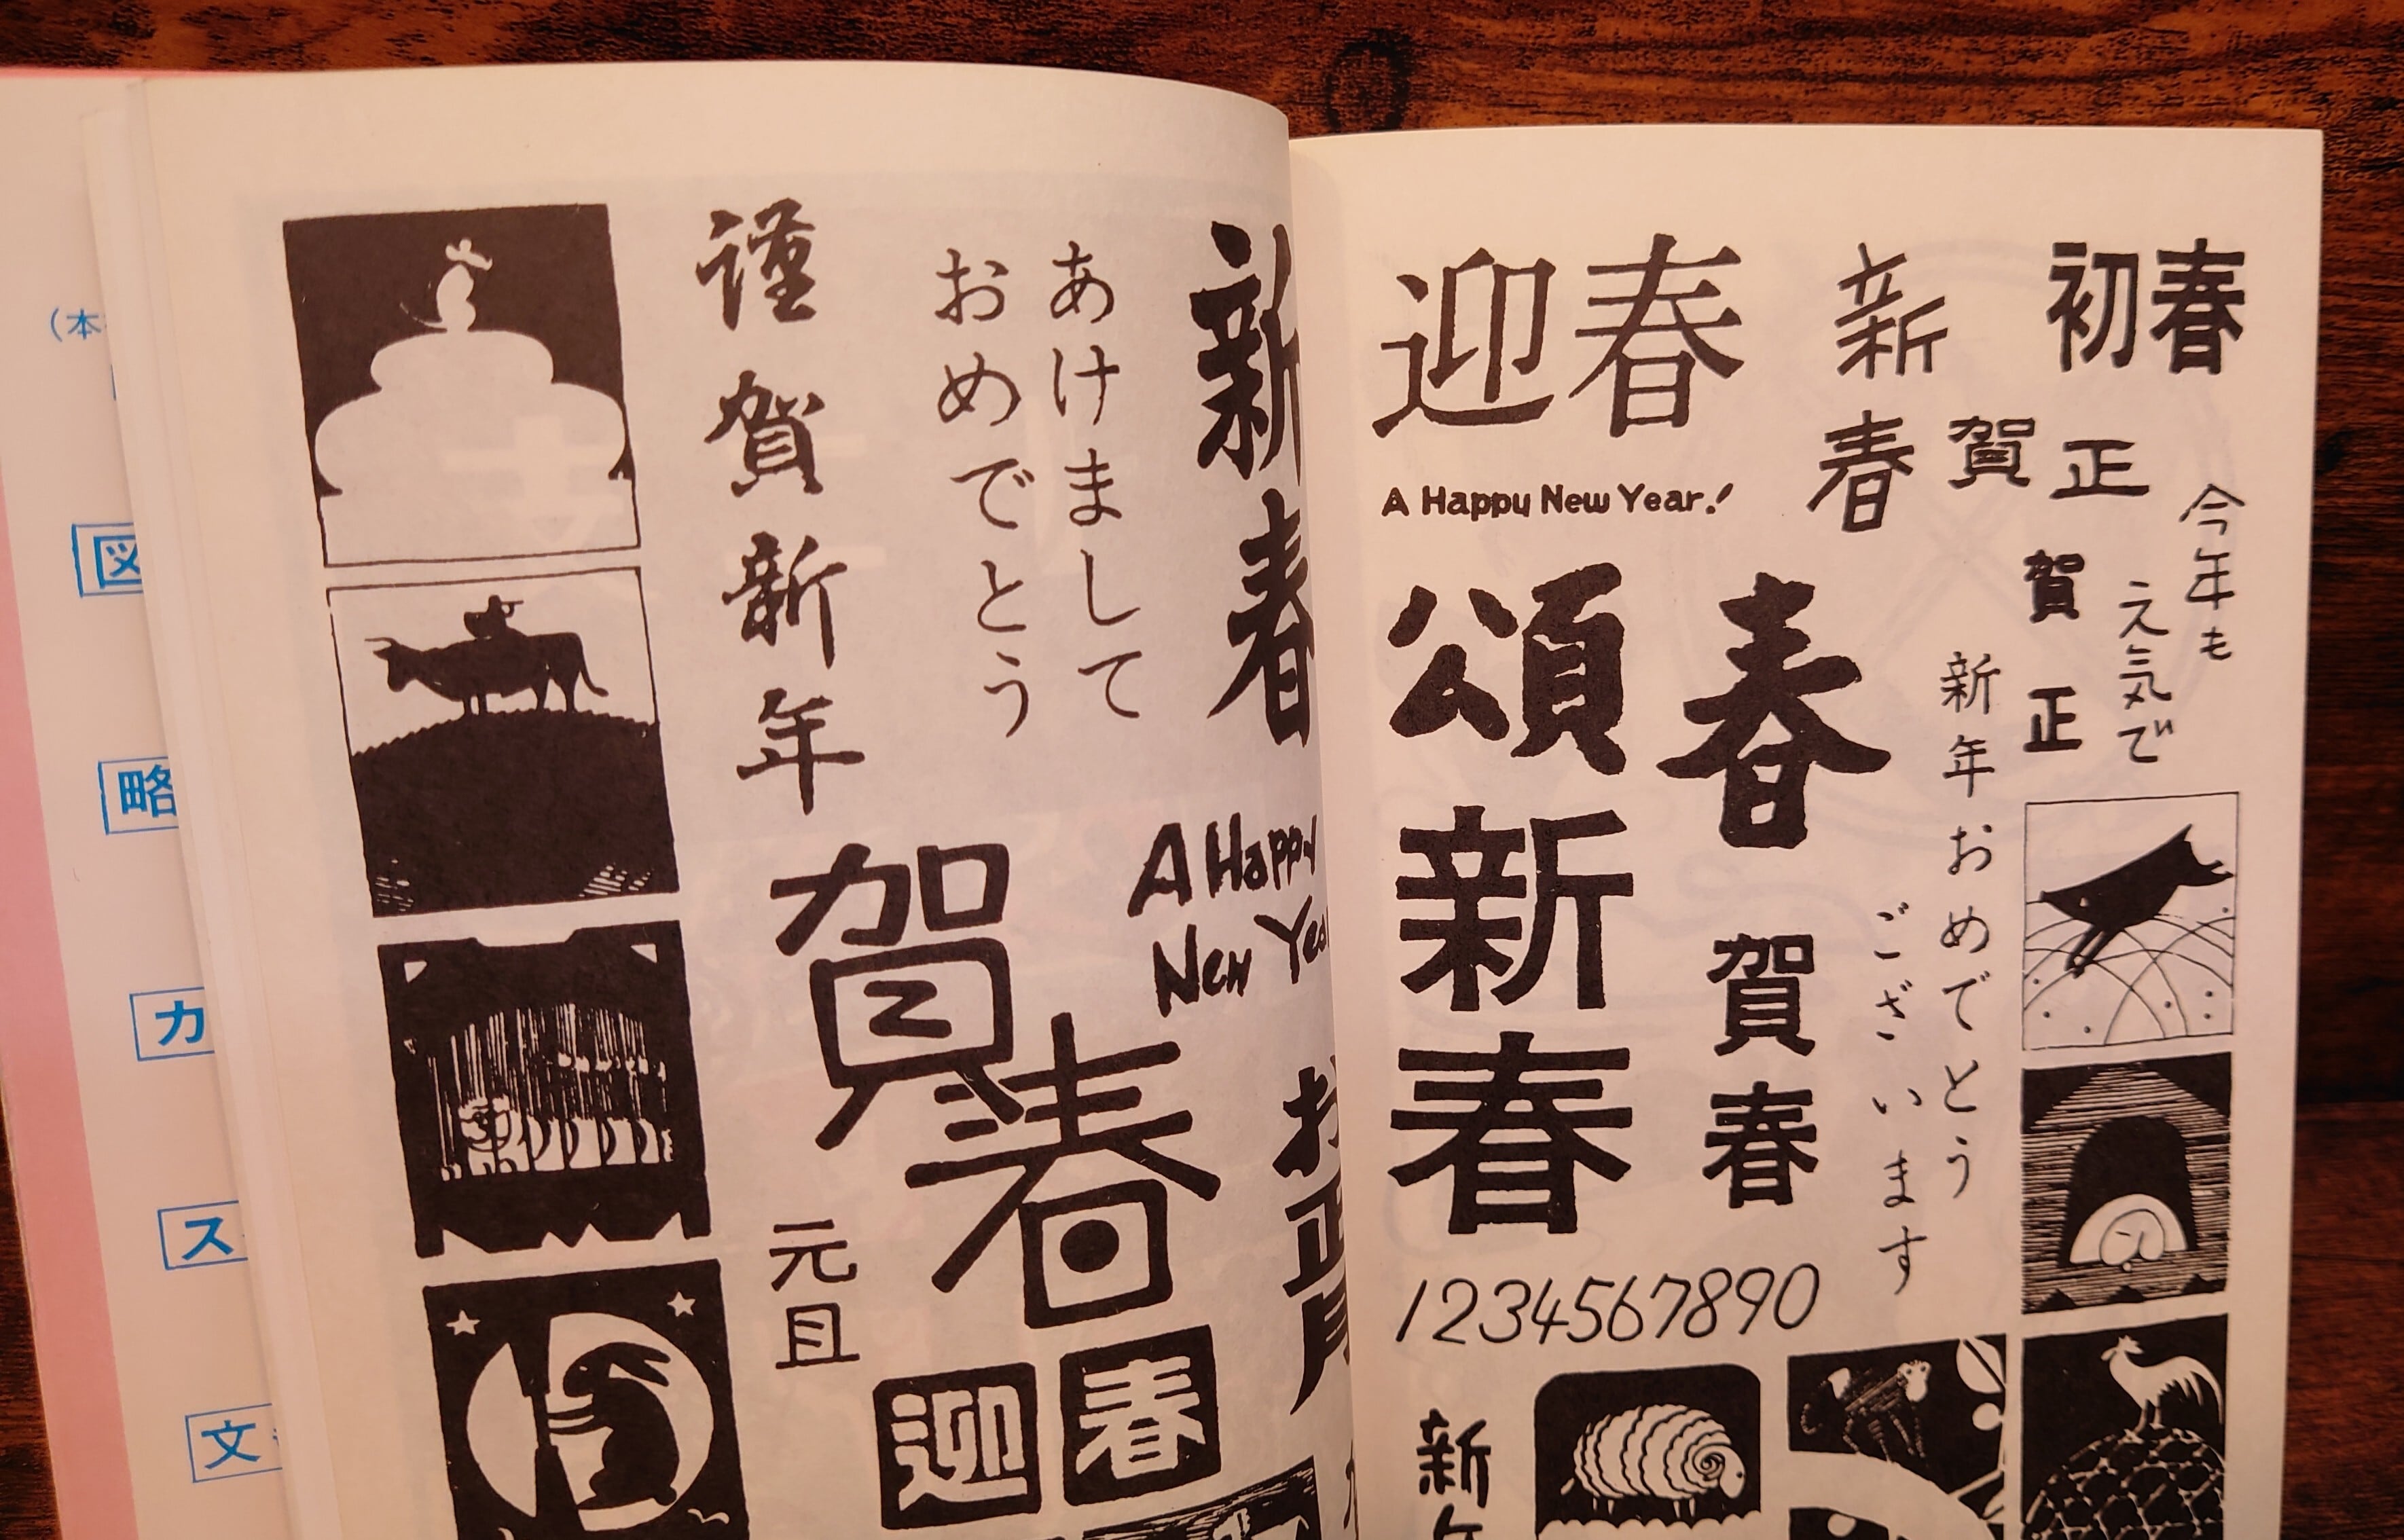 （本
図
略
カ
ス
文
謹賀新年
あけまして
おめでとう
新春
A Happy
New
賀春
元旦
迎春
お正月
迎春
A Happy New Year!
新春
初春
賀正
今年も
元気で
賀正
頌春
新年おめでとう
ございます
新春
賀春
1234567890
新年